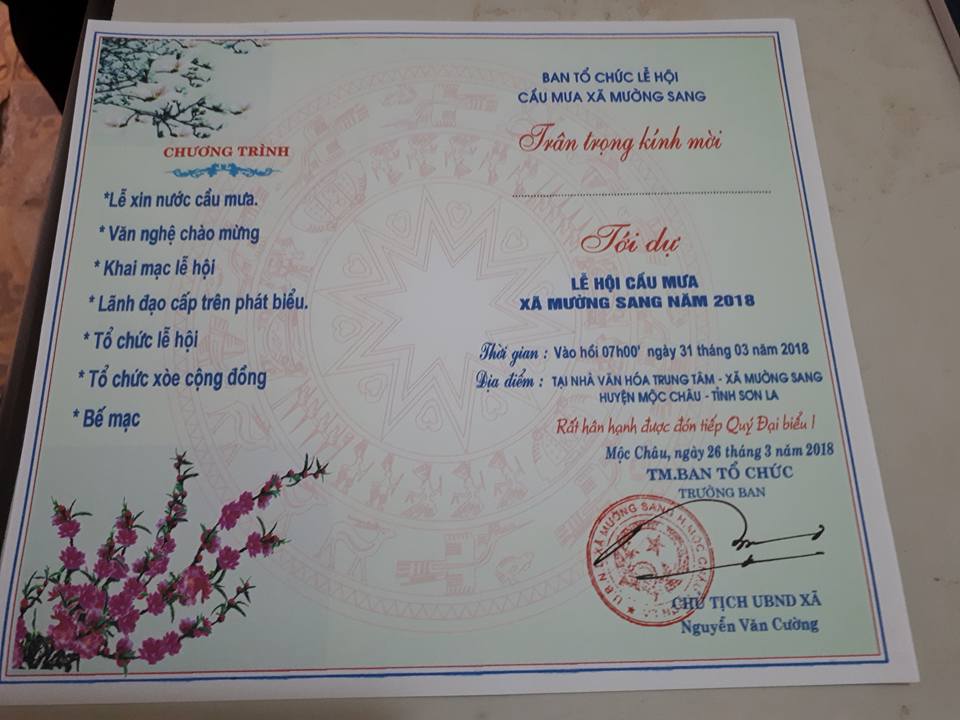 CHƯƠNG TRÌNH
*Lễ xin nước cầu mưa.
* Văn nghệ chào mừng
* Khai mạc lễ hội
* Lãnh đạo cấp trên phát biểu.
* Tổ chức lễ hội
* Tổ chức xòe cộng đồng
* Bế mạc
BAN TỔ CHỨC LỄ HỘI
CẦU MƯA XÃ MƯỜNG SANG
Trân trọng kính mời
Tới dự
LỄ HỘI CẦU MƯA
XÃ MƯỜNG SANG NĂM 2018
Thời gian : Vào hồi 07h00' ngày 31 tháng 03 năm 2018
Địa điểm : TẠI NHÀ VĂN HÓA TRUNG TÂM - XÃ MƯỜNG SANG
HUYỆN MỘC CHÂU - TỈNH SƠN LA
Rất hân hạnh được đón tiếp Quý Đại biểu !
Mộc Châu, ngày 26 tháng 3 năm 2018
TM.BAN TỔ CHỨC
TRƯỞNG BAN
XÃ MƯỜNG SANG H.MỘC CHÂU
CHỦ TỊCH UBND XÃ
Nguyễn Văn Cường